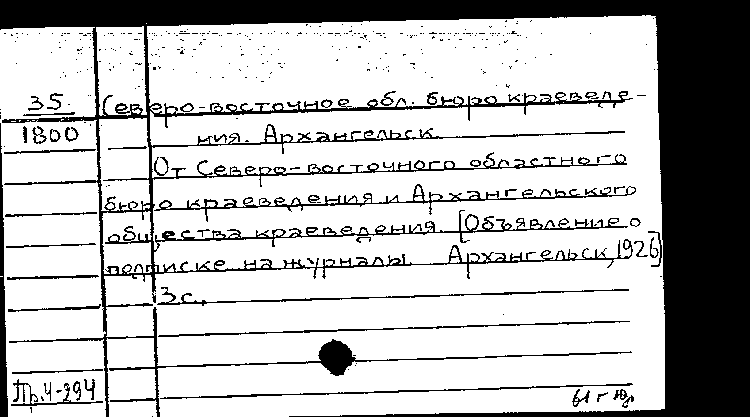 35 Северо-восточное обл. бюро краеведе-
1800 ния. Архангельск.
От Северо-восточного областного
бюро краеведения и Архангельского
общества краеведения. [Объявление о
подписке на журналы. Архангельск, 1926]
3 с.
Пр.4-294
61 г